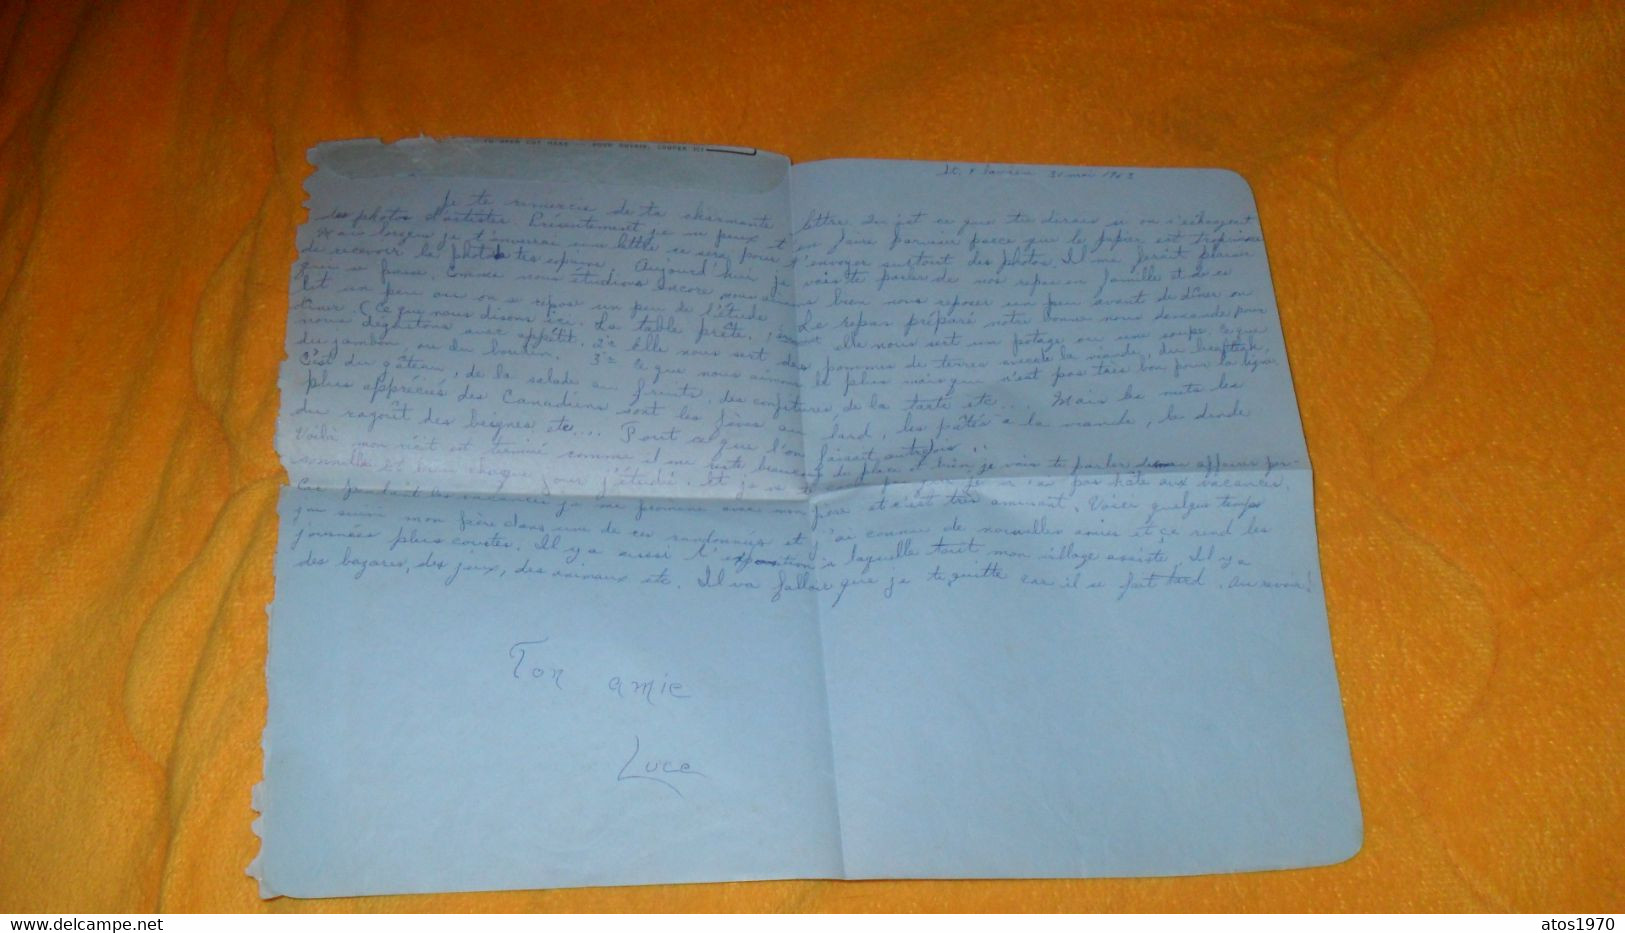 TO OPEN CUT HERE - POUR OUVRIR, COUPER ICI
31 mai 1963
Je te remercie de ta charmante lettre. Du jet ce que tu dirais si on s'échangeait
des photos d'artistes. Présentement je ne peux t'en faire parvenir parce que le papier est trop mince
Mais lorsque je t'enverrai une lettre ce sera pour t'envoyer surtout des photos. Il me ferait plaisir
de recevoir la photo tes copains. Aujourd'hui je vais te parler de nos repas en famille et de ce
que se passe. Comme nous étudions encore nous aimons bien nous reposer un peu avant de dîner on
lit un peu ou on se repose un peu de l'étude. Le repas préparé notre bonne nous demande pour
dîner. (Ce que nous disons ici. La table prête, 1° elle nous sert un potage ou une soupe. Ce que
nous dégustons avec appétit. 2° Elle nous sert des pommes de terres avec de la viande, du beefsteak,
du jambon, ou du boudin. 3° Ce que nous aimons le plus mais qui n'est pas très bon pour la ligne.
C'est du gâteau, de la salade au fruits, des confitures, de la tarte etc... Mais les mets les
plus appréciés des Canadiens sont les fèves au lard, les pâtés à la viande, la dinde
du ragoût des beignes etc... Tout ce que l'on faisait autrefois..
Voilà mon récit est terminé comme il me reste beaucoup de place et bien je vais te parler d'une affaire per-
sonnelle et bien chaque jour j'étudie. Et je n'ai pas hâte aux vacances.
Car pendant les vacances je me promène avec mon père et c'est très amusant. Voici quelque temps
j'ai suivi mon père dans une de ces randonnées et j'ai connu de nouvelles amies et ce rend les
journées plus courtes. Il y a aussi l'exposition à laquelle tout mon village assiste. Il y a
des bazares, des jeux, des animaux etc. Il va falloir que je te quitte car il se fait tard. Au revoir!
Ton amie
Luce
delcampe.net
atos1970